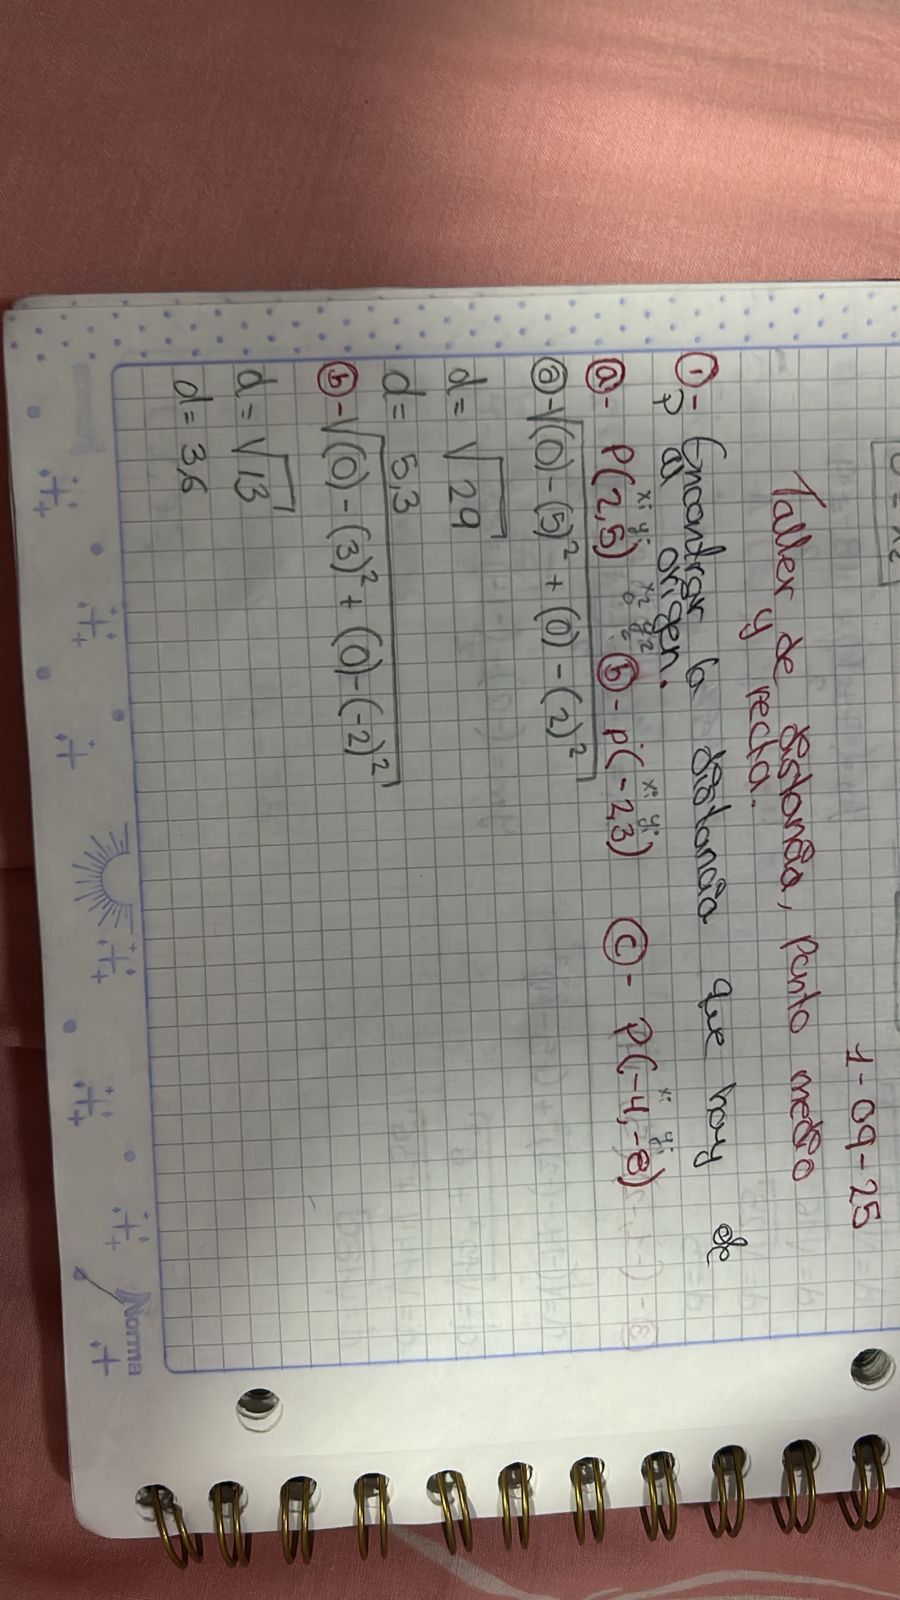 1-09-25
Taller de distancia, punto medio
y recta.
①- Encontrar la distancia que hay de
p al origen.
x₁ y₁ x₂ y₂ x₁ y₁ x₁ y₁
0 0
ⓐ- P(2,5) ⓑ- p(-2,3) ⓒ- P(-4,-8)
ⓐ-√(0)-(5)² + (0)-(2)²
d = √29
d = 5,3
ⓑ-√(0)-(3)² + (0)-(-2)²
d = √13
d = 3,6
Norma